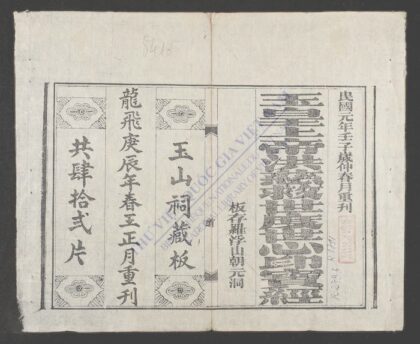 民國元年壬子歲仲春月重刊
玉皇上帝洪慈救世心印寶經
板存羅浮山朝元洞
玉山祠藏板
龍飛庚辰年春王正月重刊
共肆拾弍片
THƯ VIỆN QUỐC GIA VIỆT NAM